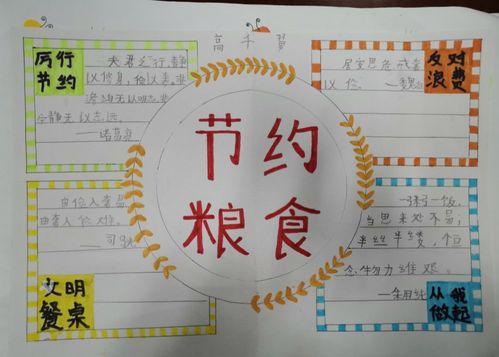 高千
厉行
节约
夫君子行,静
以修身,俭以养。非
澹泊无以明志,非
宁静无以致远。
——诸葛亮
反对
浪费
居安思危,戒奢
以俭。——魏
节约
粮食
由俭入奢易,
由奢入俭难。
——司
文明
餐桌
一粥一饭,
当思来处不易;
半丝半缕,恒
念物力维艰。
——朱用纯
从我
做起